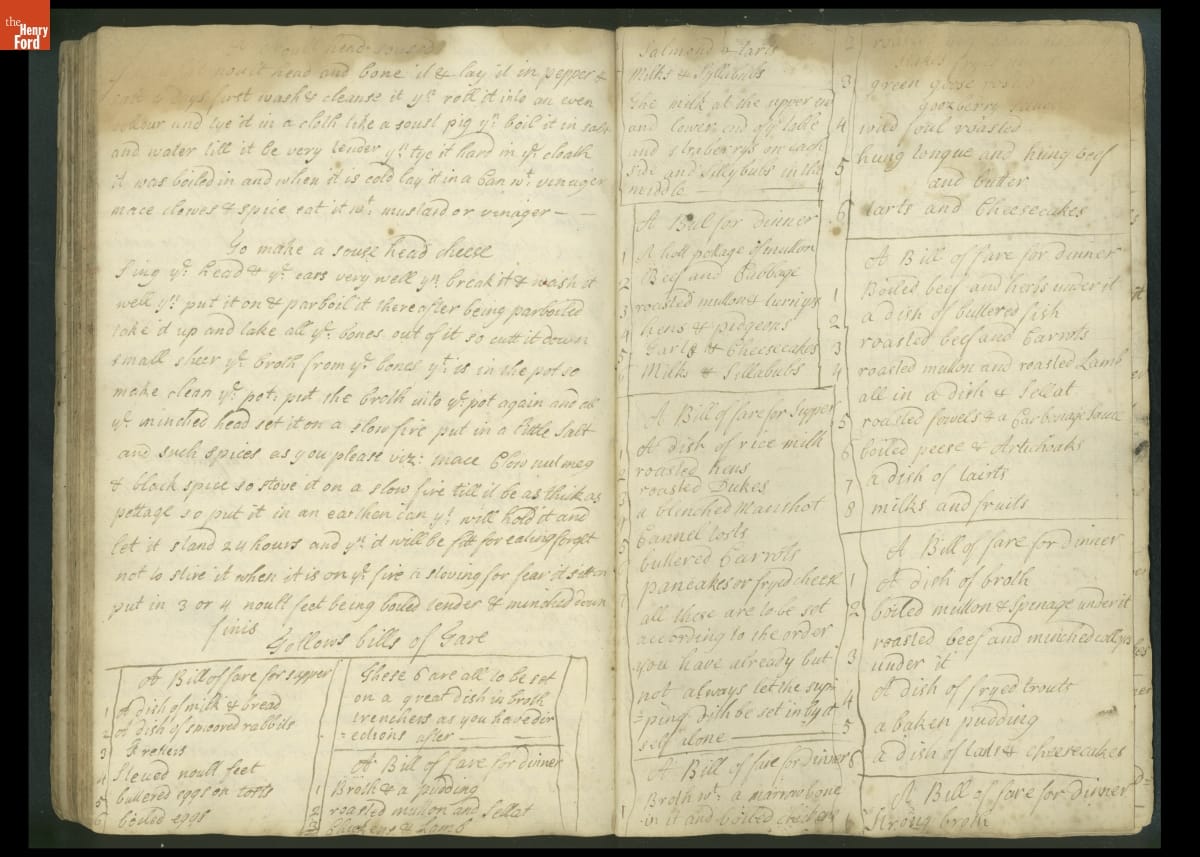 the
Henry
Ford
A noult head soused
noult head and bone it & lay it in pepper &
salt days first wash & cleanse it yn roll it into an even
collour and tye'd in a cloth like a soust pig yn boil it in salt
and water till it be very tender yn tye it hard in ye cloath
it was boiled in and when it is cold lay it in a Can wt vinager
mace clowes & spice eat it wt: mustard or vinager —
To make a souse head cheese
Sing ye head & ye ears very well yn break it & wash it
well yn put it on & parboil it thereafter being parboiled
take'd up and take all ye bones out of it so cutt it down
small sheer ye broth from ye bones yt is in the pot so
make clean ye pot: put the broth into ye pot again and all
ye minched head set it on a slow fire put in a little salt
and such spices as you please viz: mace Clow nutmeg
& black spice so stove it on a slow fire till it be as thick as
pottage so put it in an earthen can yt will hold it and
let it stand 24 hours and yn'd will be fitt for eating forget
not to stire it when it is on ye fire a stoving for fear it sitt on
put in 3 or 4 noult feet being boiled tender & minched down
finis
Follows bills of Fare
A Bill of fare for supper
1 A dish of milk & bread
2 A dish of smoored rabbits
3
4 Stewed noult feet
5 buttered eggs on tosts
6 boiled eggs
These 6 are all to be set
on a great dish in broth
trenchers as you have dir
=ections after —
A Bill of fare for dinner
1 Broth & a pudding
2 roasted mutton and sellat
3 Chickens & Lamb
Salmond & tarts
Milks & Syllibubs
the milk at the upper en
and lower end of ye table
and straberrys on each
side and sillybubs in the
middle —
A Bill for Dinner
1 A hott pottage of mutton
2 Beef and Cabbage
3 roasted mutton & turnips
4 hens & pidgeons
5 Tarts & Cheesecakes
6 Milks & Sillabubs
A Bill of fare for Supper
1 A dish of rice milk
2 roasted hens
3 roasted Dukes
4 a blinched Manshot
5 Cannel tosts
6 buttered Carrots
7 pancakes or fryed cheese
all these are to be set
according to the order
you have already but
not always let the supi
=ping dish be set in by it
self alone —
A Bill of fare for dinner
1 Broth wt: a marrow bone
in it and boiled chickens
2 roasted
stakes fryed
3 green goose
goozberry sauce
4 wild foul roasted
5 hung tongue and hung beef
and butter
6 tarts and Cheesecakes
A Bill of fare for dinner
1 Boiled beef and herbs under it
2 a dish of buttered fish
3 roasted beef and Carrots
4 roasted mutton and roasted Lamb
all in a dish & Sellat
5 roasted fowels & a Carbonage sauce
6 boiled peese & Artichoaks
7 a dish of tairts
8 milks and fruits
A Bill of fare for dinner
1 A dish of broth
2 boiled mutton & spinage under it
3 roasted beef and minched collops
under it
4 A dish of fryed trouts
5 a baken pudding
6 a dish of tarts & cheesecakes
A Bill of fare for dinner
1 Strong broth